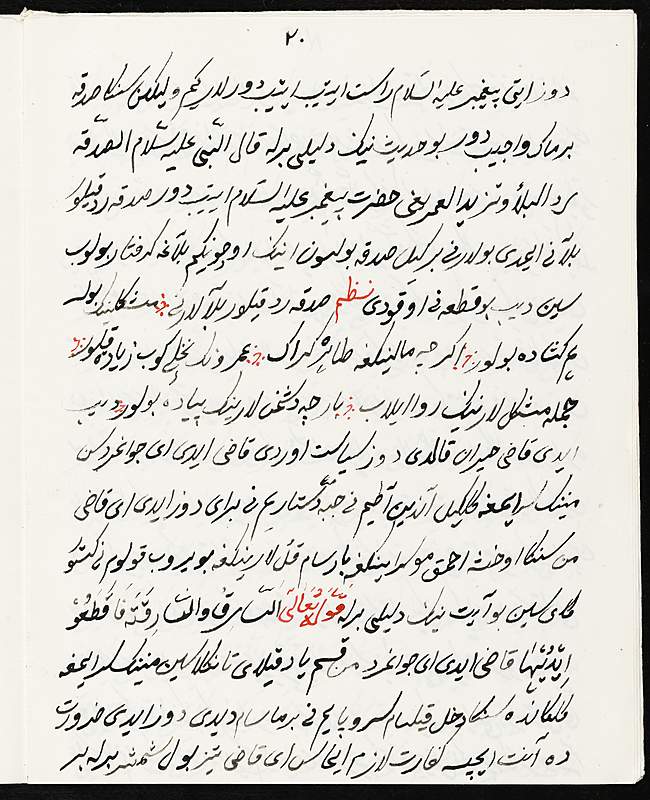 ٢٠
دوز ایتی پیغمبر علیه السلام راست ایتیب ایتیب دورلار کیم ولیکن سنکا صدقه
برماک واجیب دور بو حدیث نینک دلیلی برله قال النبی علیه السلام الصدقة
رد البلاء وتزید العمر یعنی حضرت پیغمبر علیه السلام ایتیب دور صدقه رد قیلور
بلآنی ایمدی بولارنی برکیل صدقه بولسون اینک اوچونکیم بلآغه کرفتار بولوب
سین دیب بو قطعه نی اوقودی نظم صدقه رد قیلور بلآلارنی
کشاده بولور اکرچه مالینکغه کراک عمرونک نخلی کوب زیاده قیلور
جمله مشکل لارنینک روا ایلاب بارچه دشمن لارینک پیاده بولور دیب
ایدی قاضی حیران قالدی دوز سیاست اوردی قاضی ایدی ای جوانمرد سن
مینینک سرایمغه کلکیل آندین آطیم نی جبه دستاریم نی برای دوز ایدی ای قاضی
من سنکا اوخشه احمق مو سراینکغه بارسام قل لارینکغه بویروب قولوم نی کستور
کای سین بو آیت نینک دلیلی برله قوله تعالی السارق والسارقة فاقطعو
ایدیهما قاضی ایدی ای جوانمرد من قسم یاد قیلای تانکلا سین مینینک سرایمغه
کلکانده سنکا دخل قیلمام سر و پایم نی برماسام دیدی دوز ایدی ضرورت
ده آنت ایچسه کفارت لازم ایماس ای قاضی تیز بول شمشیر برله بیر